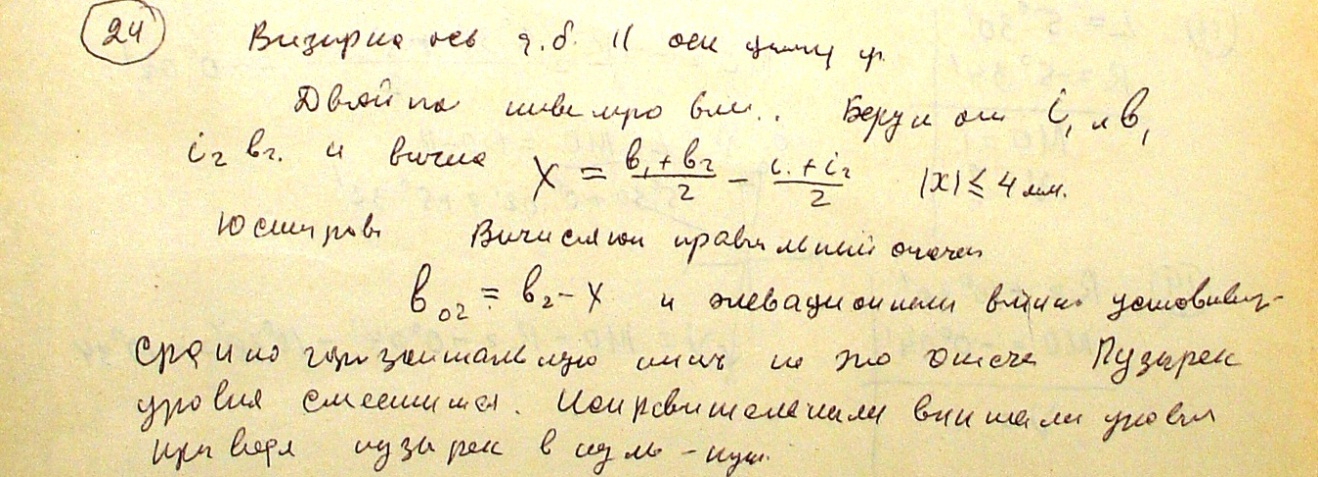 24
Визирна ось д.б. || оси цилиндр.
Двойно нивелирован.. Берут от i₁ и в₁
i₂ в₂. и вычис X = (в₁ + в₂)/2 − (i₁ + i₂)/2 |x| ≤ 4 мм.
Юстиров Вычисляют правильный отсчет
в₀₂ = в₂ − X и элевационными винтом устанавлив-
среднюю горизонтальную нить на это отсчет Пузырек
уровня сместится. Исправительными винтами уровня
приведя пузырек в нуль-пункт.